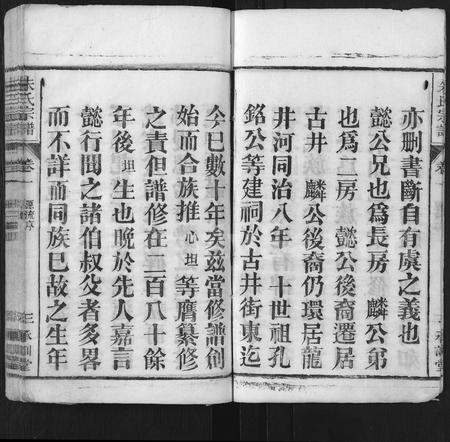 亦刪書斷自有虞之義也
懿公兄也爲長房 麟公弟
也爲二房 懿公後裔遷居
古井 麟公後裔仍環居龍
井河同治八年 十世祖孔
銘公等建祠於古井街東迄
今巳數十年矣茲當修譜創
始而合族推心坦等膺纂修
之責但譜修在二百八十餘
年後坦生也晚於先人嘉言
懿行聞之諸伯叔父者多畧
而不詳而同族巳故之生年
朱氏宗譜
卷